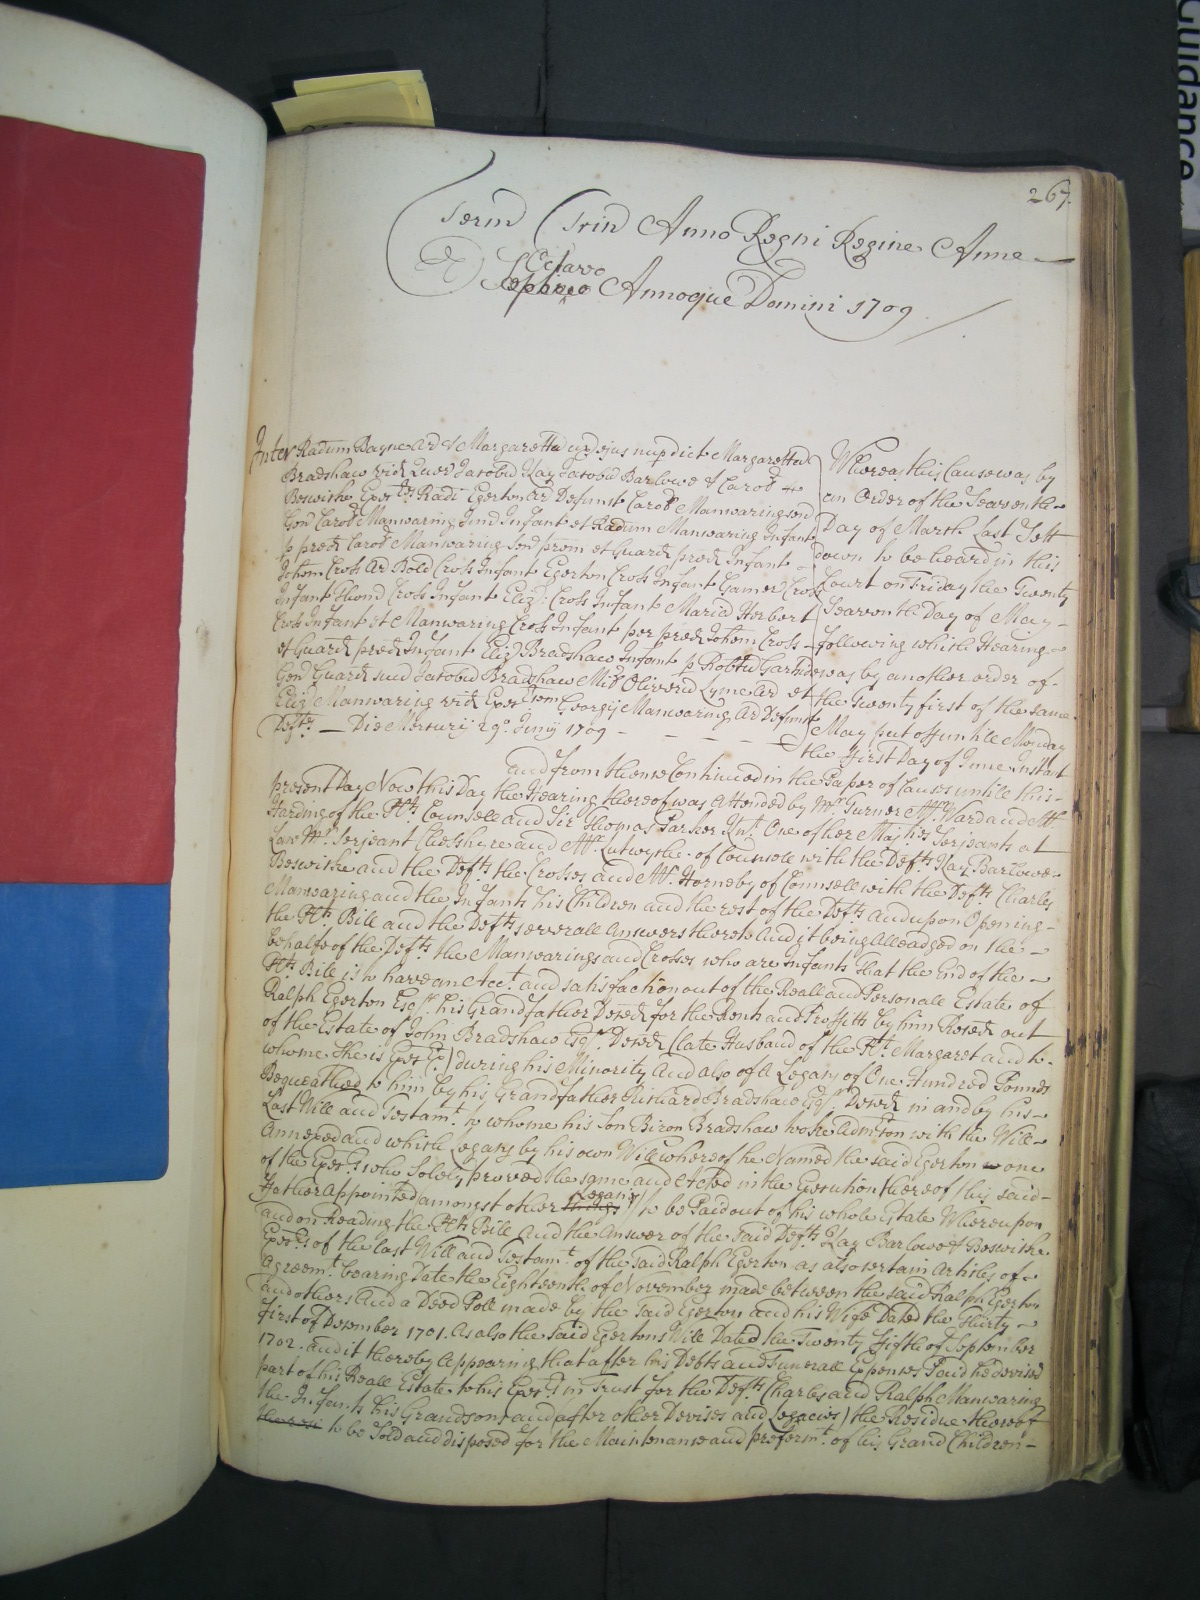 267.
Term Trin Anno Regni Regine Anne
Octavo
Septimo Annoque Domini 1709
Inter Radum Bagnet Ar & Margarettā uxō ejus nup dict Margarettā
Bradshaw vid Quer Jacobū Kay Jacobū Barlowe & Carod
Boswicke Exec.rs Radi Egerton Ar Defunct Carod Manwaring sen
Gen Carod Manwaring Jun Infant et Radum Manwaring Infant
p pred Carod Manwaring Sen prem et Guard pred Infant
Johem Cross Ar Bold Cross Infant Egerton Cross Infant Gamer Cross
Infant Thom Cross Infant Eliz: Cross Infant Maria Herbert
Cross Infant et Manwaring Cross Infant per pred Johem Cross
et Guard pred Infant Eliz Bradshaw Infant p Robtū Garside
Gen Guard suū Jacobū Bradshaw Mil Oliverū Lyme Ar et
Eliz Manwaring vid Exec Georgij Manwaring Ar Defunct
Defts — Die Mercurij 29.o Junij 1709
Whereas this Cause was by
an Order of the Seaventh
Day of March Last Sett
down to be heard in this
Court on Friday the Twenty
Seaventh Day of May
following which Hearing
was by another order of
the Twenty first of the same
May put off untill Monday
the first Day of June Instant
and from thence Continued in the Paper of Causes untill this
present Day Now this Day the Hearing thereof was Attended by Mr. Turner Mr. Ward and Mr
Harding of the Plts. Counsell and Sir Thomas Parker Knt. One of her Majties Serjeants at
Law Mr. Serjeant Cheshyre and Mr. Lutwyche of Councle with the Defts. Kay Barlowe
Boswicke and the Defts. the Crosses and Mr. Horneby of Counsell with the Defts. Charles
Manwaring and the Infants his Children and the rest of the Defts. And upon Opening
the Plts. Bill and the Defts severall Answers thereto And it being Alleadged on the
behalfe of the Defts. the Manwarings and Crosses who are Infants That the End of the
Plts. Bill is to have an Acct. and satisfaction out of the Reall and Personall Estate of
Ralph Egerton Esqr. his Grandfather Deced for the Rents and Proffitts by him Reced out
of the Estate of John Bradshaw Esqr. Deced (late Husband of the Plt. Margaret and to
whome she is Exec) during his Minority And also of A Legacy of One Hundred Pounds
Bequeathed to him by his Grandfather Richard Bradshaw Esqr. Deced in and by his
Last Will and Testamt. to whome his Son Biron Bradshaw tooke Admcon with the Will
Annexed and which Legacy by his own Will whereof he Named the said Egerton one
of the Execrs. who Solely proved the same and Acted in the Execution thereof / his said
Father Appointed amongst other Legacy / to be Paid out of his whole Estate Whereupon
and on Reading the Plts Bill And the Answer of the said Defts Kay Barlowe & Boswicke
Execrs. of the last Will and Testamt. of the said Ralph Egerton as also certain Articles of
Agreemt. bearing Date the Eighteenth of November made between the said Ralph Egerton
and others And a Deed Poll made by the said Egerton and his Wife Dated the Thirty
first of December 1701. As also the said Egertons Will Dated the Twenty Fifth of September
1702. and it thereby Appearing that after his Debts and Funerall Expences Paid he devised
part of his Reall Estate to his Execrs. in Trust for the Defts. Charles and Ralph Manwaring
the Infants his Grandsons and (after other Devises and Legacies) the Residue thereof
to be Sold and disposed for the Maintenance and preferrmt. of his Grand Children
Guidance